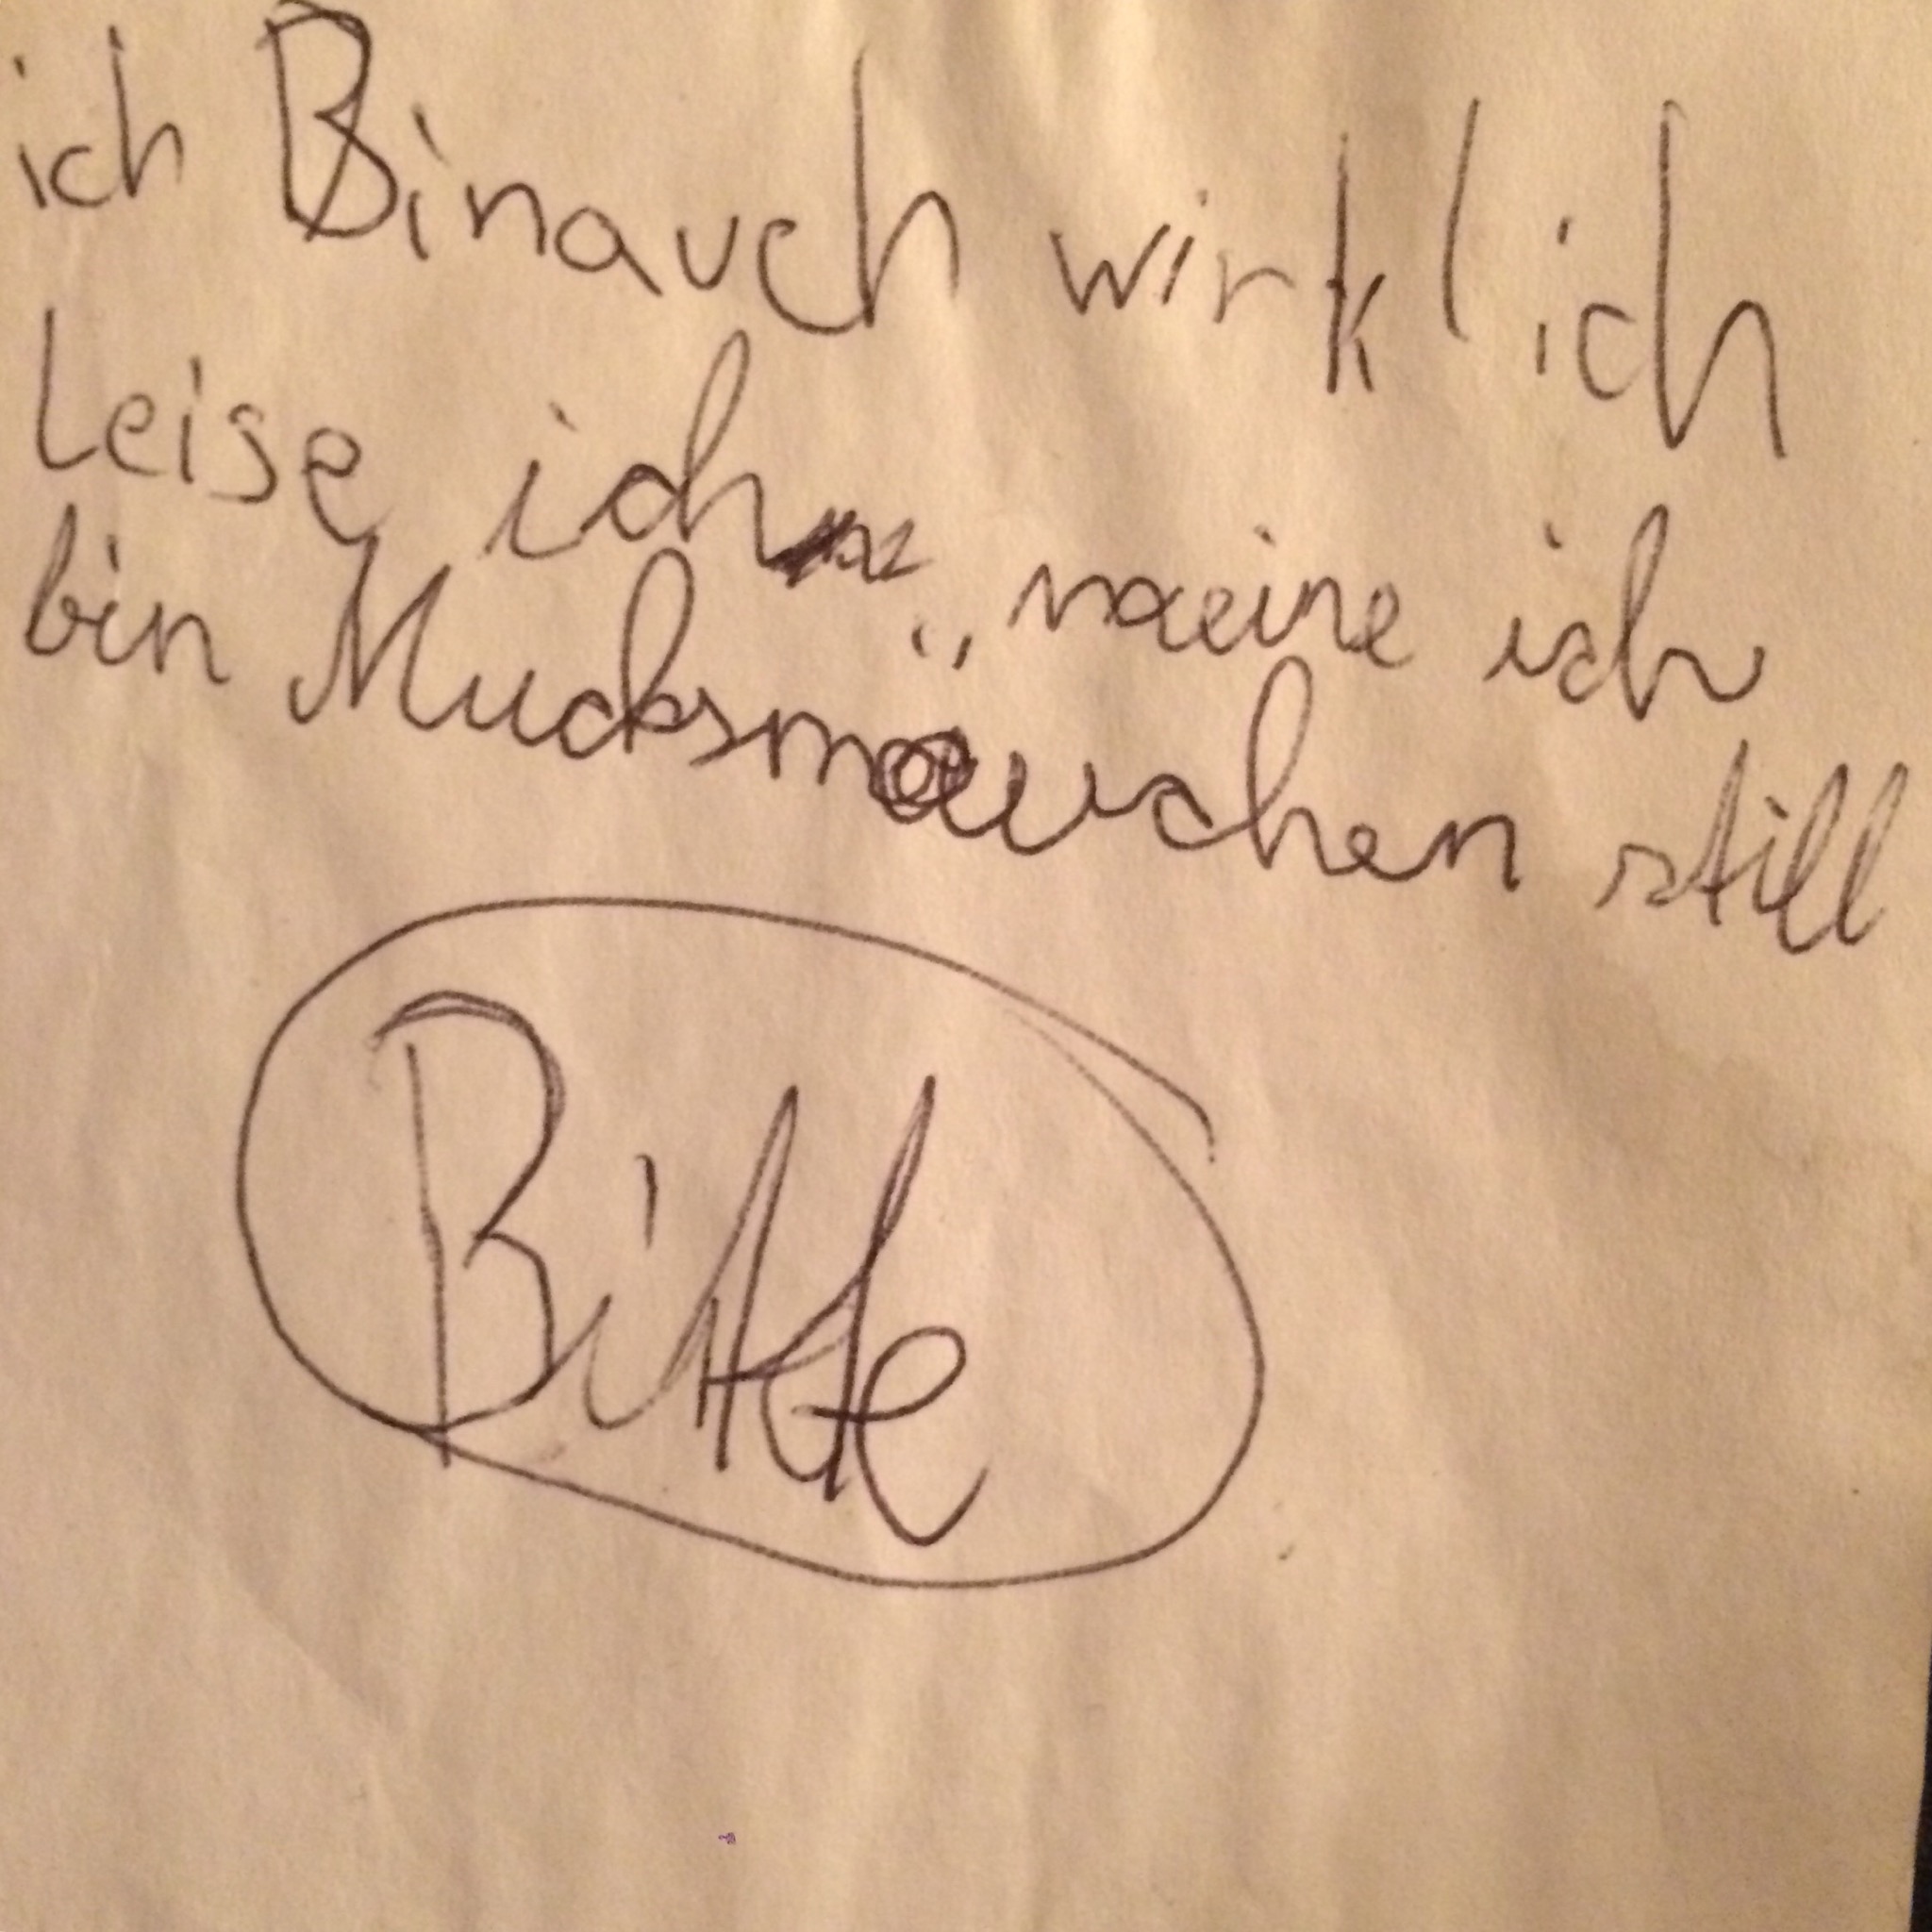 ich Binauch wirklich
Leise ich maeine ich
bin Mucksmäuschen still
Bitte